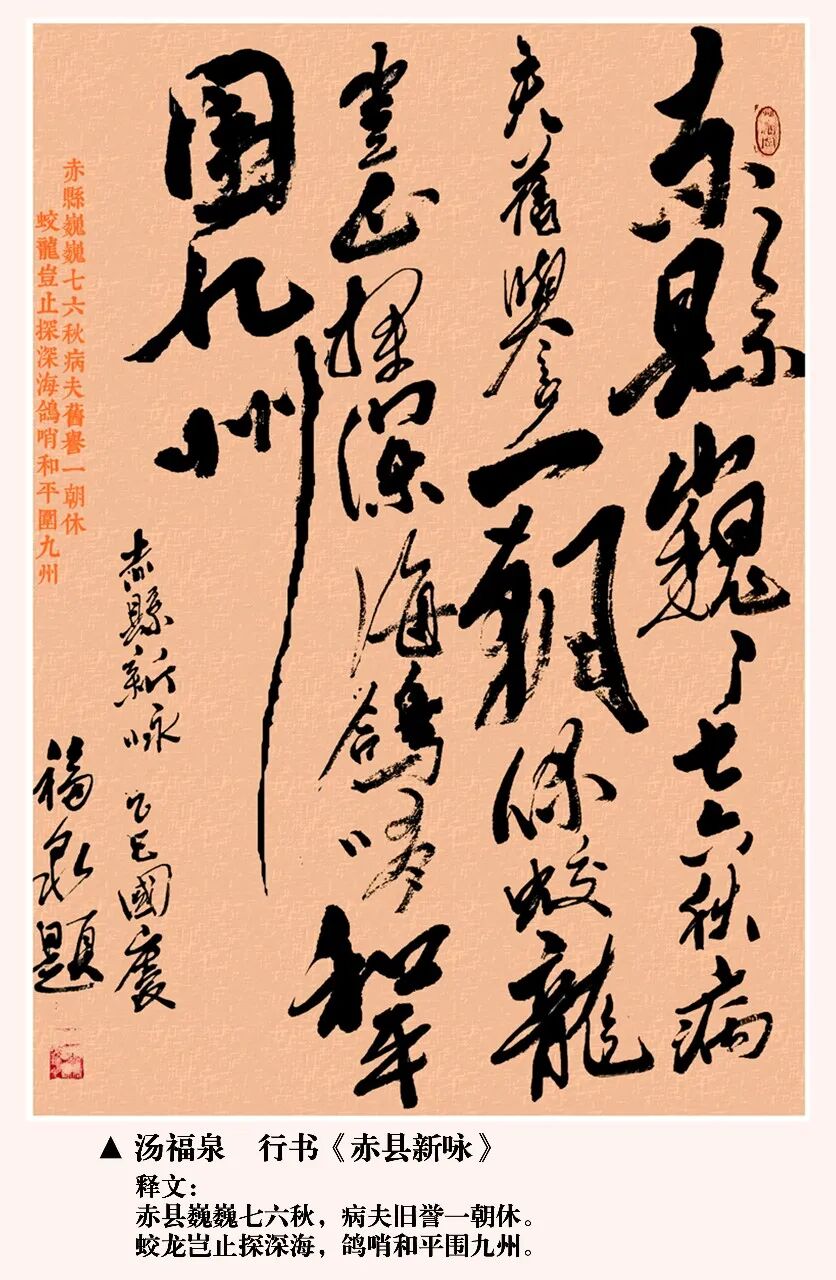 赤縣巍々七六秋病
夫舊譽一朝休蛟龍
豈止探深海鴿哨和平
圍九州
赤縣新咏 乙巳國慶
福泉題
赤縣巍巍七六秋病夫舊譽一朝休
蛟龍豈止探深海鴿哨和平圍九州
▲ 汤福泉 行书《赤县新咏》
释文：
赤县巍巍七六秋，病夫旧誉一朝休。
蛟龙岂止探深海，鸽哨和平围九州。